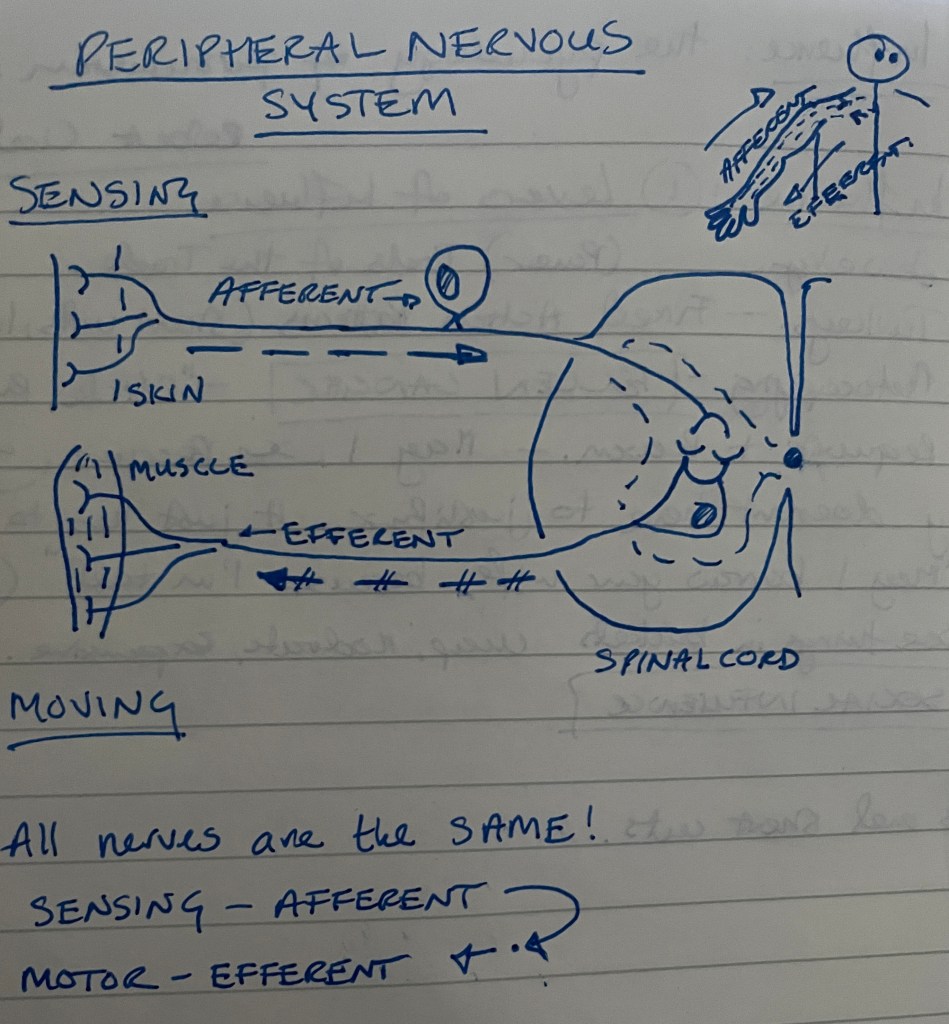 PERIPHERAL NERVOUS
SYSTEM
AFFERENT
EFFERENT
SENSING
AFFERENT
SKIN
MUSCLE
EFFERENT
SPINAL CORD
MOVING
All nerves are the SAME!
SENSING - AFFERENT
MOTOR - EFFERENT